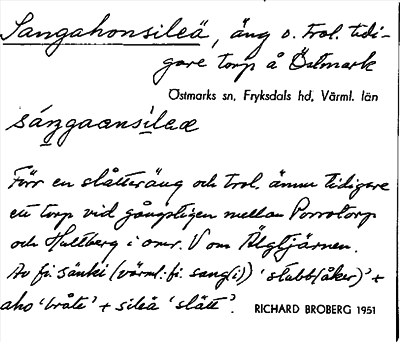 Sangahonsileä, äng o. trol. tidi-
gare torp å Östmark
Östmarks sn, Fryksdals hd, Värml. län
sáŋgaansileæ
Förr en slåtteräng och trol. ännu tidigare
ett torp vid gångstigen mellan Porrotorp
och Hultberg i omr. V om Älgtjärnen.
Av fi. sänki (värml. fi. sang(i)) 'stubb(åker)' +
aho 'bråte' + sileä 'slätt'. RICHARD BROBERG 1951